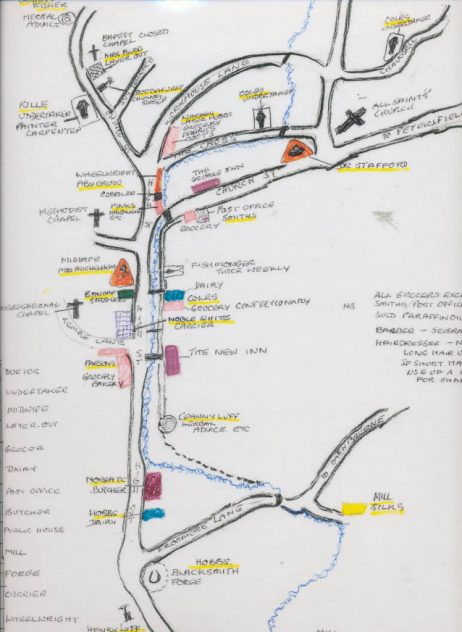 FISHER
HERBAL
ADVICE
BAPTIST CLOSED
CHAPEL
MRS BUDD
LAYER OUT
CHIMNEY
SWEEP
KILLE
UNDERTAKER
PAINTER
CARPENTER
WORKHOUSE LANE
COLES
UNDERTAKER
CHALK HILL
COLES
UNDERTAKER
ALL SAINTS'
CHURCH
TO PETERSFIELD
THE CROSS
DR STAFFORD
WHEELWRIGHT
COBBLER
THE
GEORGE INN
CHURCH ST
PINKS
HARDWARE
ETC
METHODIST
CHAPEL
POST OFFICE
SMITHS
GROCERY
MIDWIFE
MRS BUCKINGHAM
FISHMONGER
TWICE WEEKLY
DAIRY
COLES
GROCERY CONFECTIONARY
CONGREGATIONAL
CHAPEL
NOBLE WHITE
CARRIER
LANE
NB
ALL GROCERS EXC
SMITHS, POST OFFIC
SOLD PARAFFIN OIL
BARBER - SEVERA
HAIRDRESSER - N
LONG HAIR
IF SHORT HA
USE OF A
PER
PARSONS
GROCERY
BAKERY
THE NEW INN
GRANNY LUFF
HERBAL
ADVICE, ETC
DOCTOR
UNDERTAKER
MIDWIFE
LAYER OUT
GROCER
DAIRY
POST OFFICE
BUTCHER
PUBLIC HOUSE
MILL
FORGE
CARRIER
WHEELWRIGHT
BUTCHER
HOBBS
DAIRY
FROGMORE LANE
MILL
SILKS
HOBBS
BLACKSMITH
FORGE
HENRY
MILL